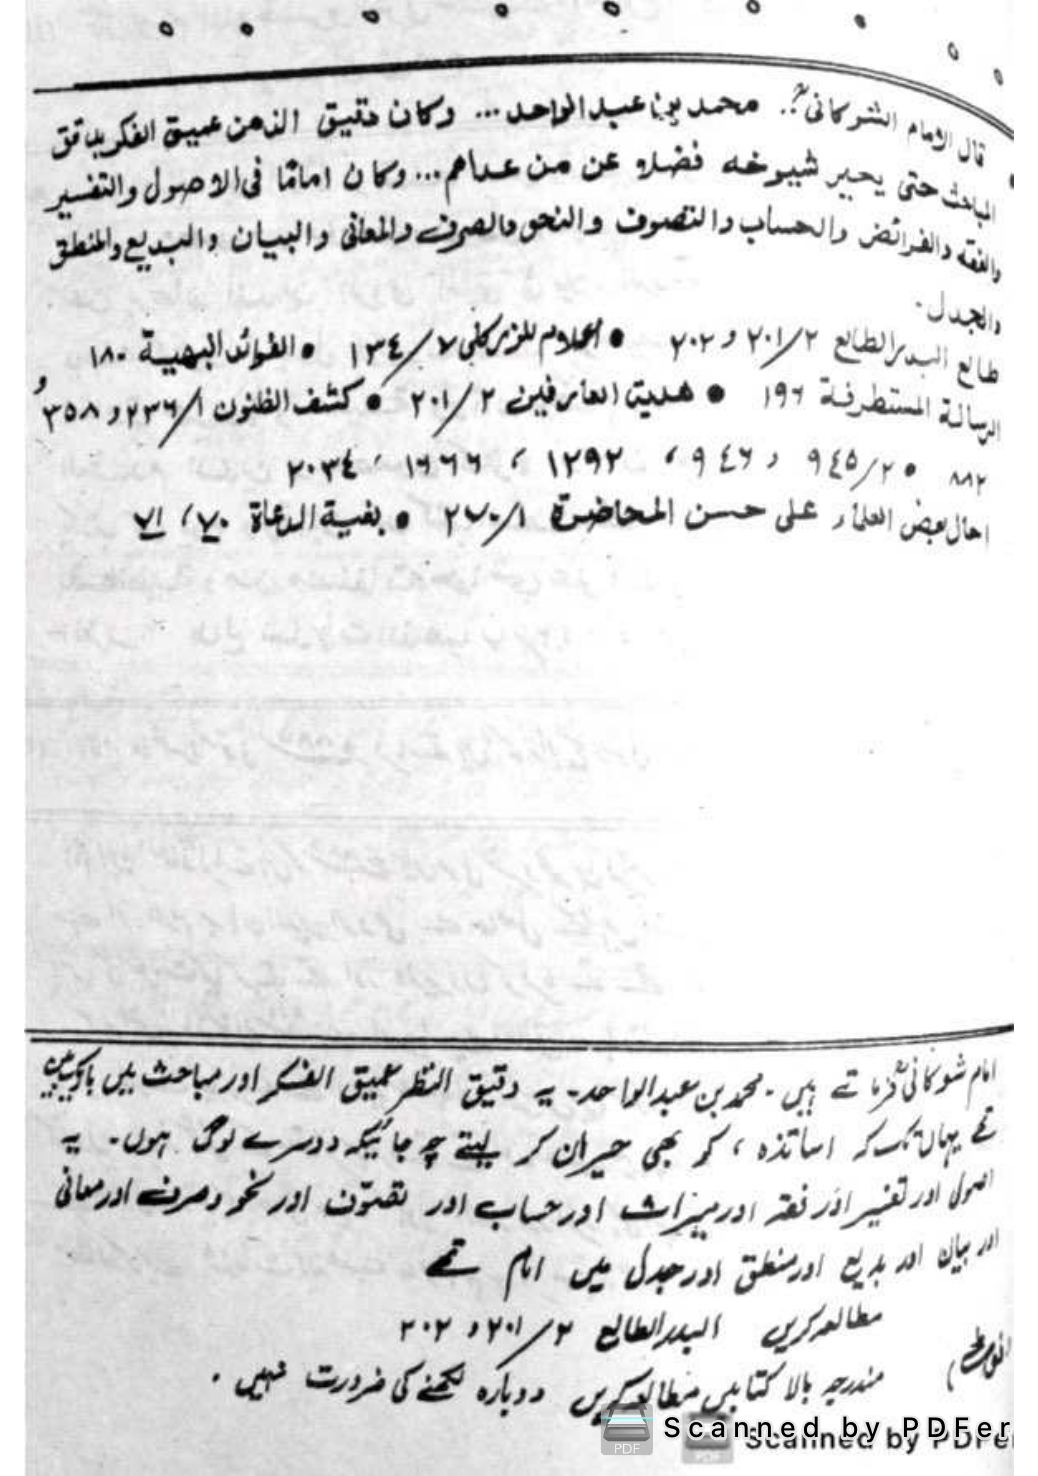 قال الامام الشوکانیؒ. محمد بن عبد الواحد... وکان دقیق الذهن عمیق الفکر یدقق
المباحث حتی یحیر شیوخه فضلا عن من عداهم... وکان امامًا فی الاصول والتفسیر
والفقه والفرائض والحساب والتصوف والنحو والصرف والمعانی والبیان والبدیع والمنطق
والجدل.
طالع البدر الطالع ٢/٢٠١ و ٢٠٢ • اعلام للزرکلی ٧/١٣٤ • الفوائد البهیة ١٨٠
الرسالة المستطرفة ١٩٦ • هدیة العارفین ٢/٢٠١ • کشف الظنون ١/٢٣٦ و ٣٥٨ و
٨٨٢ • ٢/٩٤٥ و ٩٤٦ ، ١٢٩٢ ، ١٦٦٦ ، ٢٠٣٤
احال بعض العلماء علی حسن المحاضرة ١/٢٧٠ • بغیة الدعاة ٧٠، ٧١
امام شوکانیؒ فرماتے ہیں۔ محمد بن عبدالواحد۔ یہ دقیق النظر عمیق الفکر اور مباحث میں باریک بین
تھے یہاں تک کہ اساتذہ، کو بھی حیران کر لیتے چہ جائیکہ دوسرے لوگ ہوں۔ یہ
اصول اور تفسیر اور فقہ اور میراث اور حساب اور تصوّف اور نحو و صرف اور معانی
اور بیان اور بدیع اور منطق اور جدل میں امام تھے
مطالعہ کریں البدر الطالع ٢/٢٠١ و ٢٠٢
(نوٹ) مندرجہ بالا کتابیں مطالعہ کریں دوبارہ لکھنے کی ضرورت نہیں.
Scanned by PDFer
Scanned by PDFer